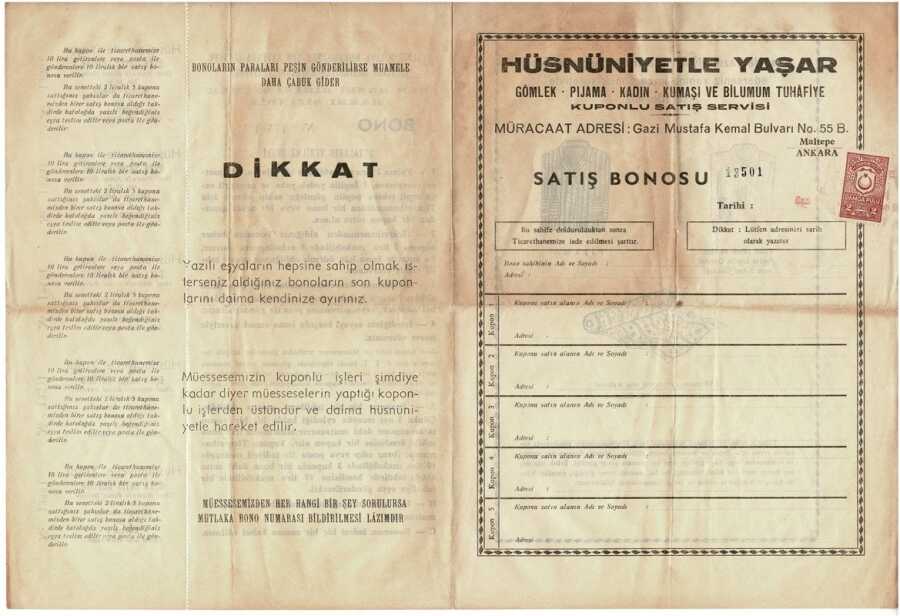 Bu kupon ile ticarethanemize
10 lira getirenlere veya posta ile
gönderenlere 10 liralık satış bo-
nosu verilir.
Bu senetteki 2 liralık 5 kupona
sattığınız şahıslar da ticarethane-
mizden birer satış bonosu aldığı tak-
dirde katalogda yazılı beğendiğiniz
eşya teslim edilir veya posta ile gön-
derilir.
Bu kupon ile ticarethanemize
10 lira getirenlere veya posta ile
gönderenlere 10 liralık satış bo-
nosu verilir.
Bu senetteki 2 liralık 5 kupona
sattığınız şahıslar da ticarethane-
mizden birer satış bonosu aldığı tak-
dirde katalogda yazılı beğendiğiniz
eşya teslim edilir veya posta ile gön-
derilir.
Bu kupon ile ticarethanemize
10 lira getirenlere veya posta ile
gönderenlere 10 liralık satış bo-
nosu verilir.
Bu senetteki 2 liralık 5 kupona
sattığınız şahıslar da ticarethane-
mizden birer satış bonosu aldığı tak-
dirde katalogda yazılı beğendiğiniz
eşya teslim edilir veya posta ile gön-
derilir.
Bu kupon ile ticarethanemize
10 lira getirenlere veya posta ile
gönderenlere 10 liralık satış bo-
nosu verilir.
Bu senetteki 2 liralık 5 kupona
sattığınız şahıslar da ticarethane-
mizden birer satış bonosu aldığı tak-
dirde katalogda yazılı beğendiğiniz
eşya teslim edilir veya posta ile gön-
derilir.
Bu kupon ile ticarethanemize
10 lira getirenlere veya posta ile
gönderenlere 10 liralık satış bo-
nosu verilir.
Bu senetteki 2 liralık 5 kupona
sattığınız şahıslar da ticarethane-
mizden birer satış bonosu aldığı tak-
dirde katalogda yazılı beğendiğiniz
eşya teslim edilir veya posta ile gön-
derilir.
BONOLARIN PARALARI PEŞİN GÖNDERİLİRSE MUAMELE
DAHA ÇABUK GİDER
DİKKAT
Yazılı eşyaların hepsine sahip olmak is-
terseniz aldığınız bonoların son kupon-
larını daima kendinize ayırınız.
Müessesemizin kuponlu işleri şimdiye
kadar diyer müesseselerin yaptığı kopon-
lu işlerden üstündür ve daima hüsnüni-
yetle hareket edilir.
MÜESSESEMİZDEN HER HANGİ BİR ŞEY SORULURSA
MUTLAKA BONO NUMARASI BİLDİRİLMESİ LÂZIMDIR
HÜSNÜNİYETLE YAŞAR
GÖMLEK - PIJAMA - KADIN - KUMAŞI VE BİLUMUM TUHAFİYE
KUPONLU SATIŞ SERVİSİ
MÜRACAAT ADRESİ : Gazi Mustafa Kemal Bulvarı No. 55 B.
Maltepe
ANKARA
SATIŞ BONOSU 12501
Tarihi :
DAMGA PULU
Bu sahife doldurulduktan sonra
Ticarethanemize iade edilmesi şarttır.
Dikkat : Lütfen adresinizi tarih
olarak yazınız
Bono sahibinin Adı ve Soyadı :
Adresi :
Kupon 1
Kuponu satın alanın Adı ve Soyadı :
Adresi :
Kupon 2
Kuponu satın alanın Adı ve Soyadı :
Adresi :
Kupon 3
Kuponu satın alanın Adı ve Soyadı :
Adresi :
Kupon 4
Kuponu satın alanın Adı ve Soyadı :
Adresi :
Kupon 5
Kuponu satın alanın Adı ve Soyadı :
Adresi :